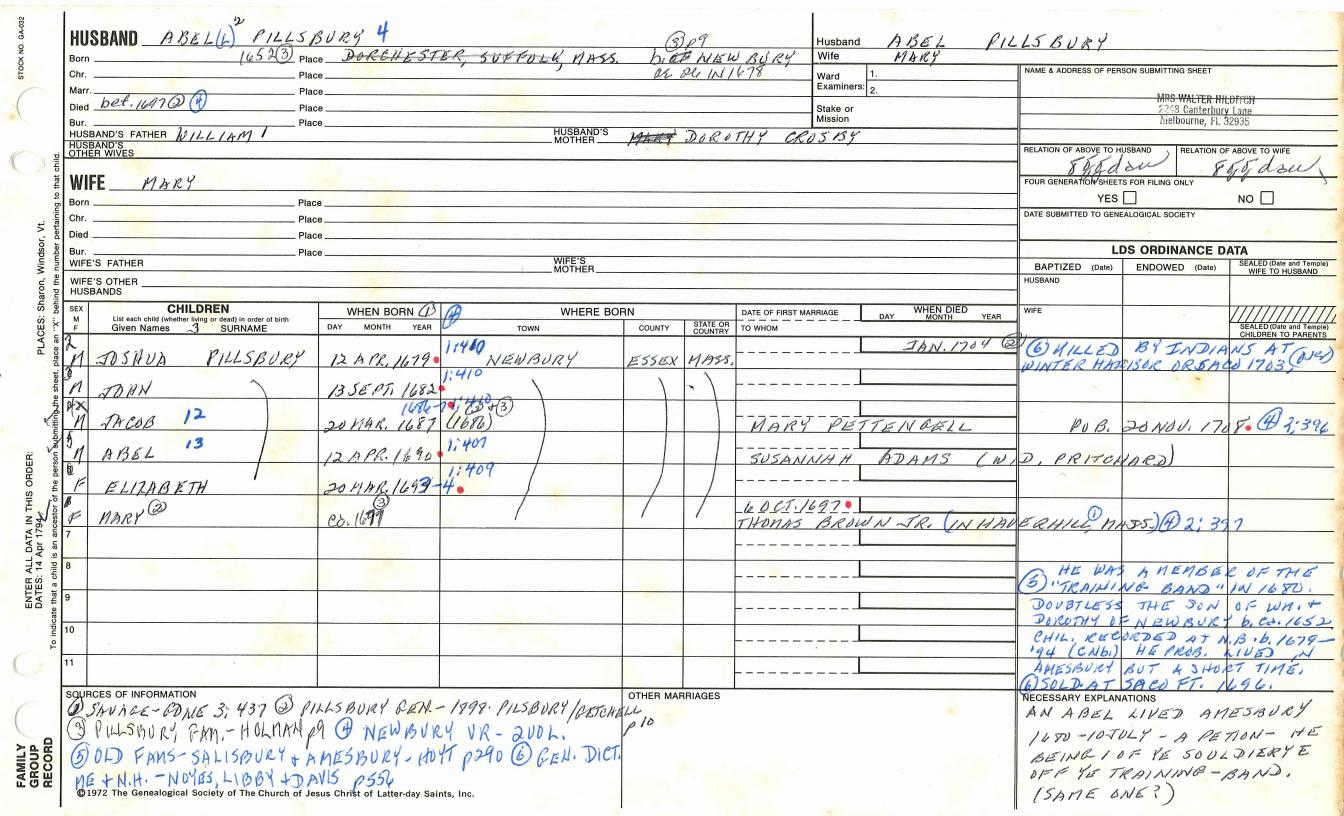 STOCK NO. GA-032
HUSBAND ABEL (L)² PILLSBURY 4
Born 1652 (3) Place DORCHESTER, SUFFOLK, MASS. NEWBURY
(3) p9
IN 1678
Chr. Place
Marr. Place
Died bet. 1697 (2) (4) Place
Bur. Place
HUSBAND'S FATHER WILLIAM 1 HUSBAND'S MOTHER MARY DOROTHY CROSBY
HUSBAND'S OTHER WIVES
WIFE MARY
Born Place
Chr. Place
Died Place
Bur. Place
WIFE'S FATHER WIFE'S MOTHER
WIFE'S OTHER HUSBANDS
Husband ABEL PILLSBURY
Wife MARY
Ward Examiners: 1.
2.
Stake or Mission
NAME & ADDRESS OF PERSON SUBMITTING SHEET
MRS WALTER HILDITCH
2268 Canterbury Lane
Melbourne, FL 32935
RELATION OF ABOVE TO HUSBAND RELATION OF ABOVE TO WIFE
8 ggdau 8 ggdau
FOUR GENERATION SHEETS FOR FILING ONLY
YES NO
DATE SUBMITTED TO GENEALOGICAL SOCIETY
LDS ORDINANCE DATA
BAPTIZED (Date) ENDOWED (Date) SEALED (Date and Temple) WIFE TO HUSBAND
HUSBAND
WIFE
SEALED (Date and Temple) CHILDREN TO PARENTS
SEX M F
CHILDREN
List each child (whether living or dead) in order of birth
Given Names 3 SURNAME
WHEN BORN (1) (4)
DAY MONTH YEAR
WHERE BORN
TOWN COUNTY STATE OR COUNTRY
DATE OF FIRST MARRIAGE
TO WHOM
WHEN DIED
DAY MONTH YEAR
M JOSHUA PILLSBURY 12 APR. 1679 1:410 NEWBURY ESSEX MASS. JAN. 1704 (2)
(6) KILLED BY INDIANS AT
WINTER HARBOR OR SACO 1703,
M JOHN 13 SEPT. 1682 1:410
M JACOB 12 20 MAR. 1687 1686-7 1:410 (2)+(3) (1686) MARY PETTENGELL PUB. 20 NOV. 1708 (4) 2:396
M ABEL 13 12 APR. 1690 1:407 SUSANNAH ADAMS (WID. PRITCHARD)
F ELIZABETH 20 MAR. 1693-4 1:409
F MARY (2) ca. 1677 (3) 6 OCT. 1697
THOMAS BROWN JR. (IN HAVERHILL, (1) MASS.) (4) 2:397
7
8
9
10
11
(5) HE WAS A MEMBER OF THE
"TRAINING BAND" IN 1680.
DOUBTLESS THE SON OF WM. +
DOROTHY OF NEWBURY b. ca. 1652.
CHIL. RECORDED AT N.B. b. 1679-
'94 (CNb.) HE PROB. LIVED IN
AMESBURY BUT A SHORT TIME.
(6) SOLD. AT SACO FT. 1696.
SOURCES OF INFORMATION
(1) SAVAGE-GDNE 3; 437 (2) PILLSBURY GEN.- 1898. PILSBURY/GETCHELL p10
(3) PILLSBURY FAM.- HOLMAN p9 (4) NEWBURY VR - 2VOL.
(5) OLD FAMS- SALISBURY + AMESBURY - HOYT p290 (6) GEN. DICT.
ME + N.H. - NOYES, LIBBY + DAVIS p556
©1972 The Genealogical Society of The Church of Jesus Christ of Latter-day Saints, Inc.
OTHER MARRIAGES
NECESSARY EXPLANATIONS
AN ABEL LIVED AMESBURY
1680 - 10 JULY - A PETION - HE
BEING 1 OF YE SOULDIERYE
OFF YE TRAINING-BAND.
(SAME ONE?)
FAMILY GROUP RECORD
ENTER ALL DATA IN THIS ORDER:
DATES: 14 Apr 1794
PLACES: Sharon, Windsor, Vt.
To indicate that a child is an ancestor of the person submitting the sheet, place an "X" behind the number pertaining to that child.